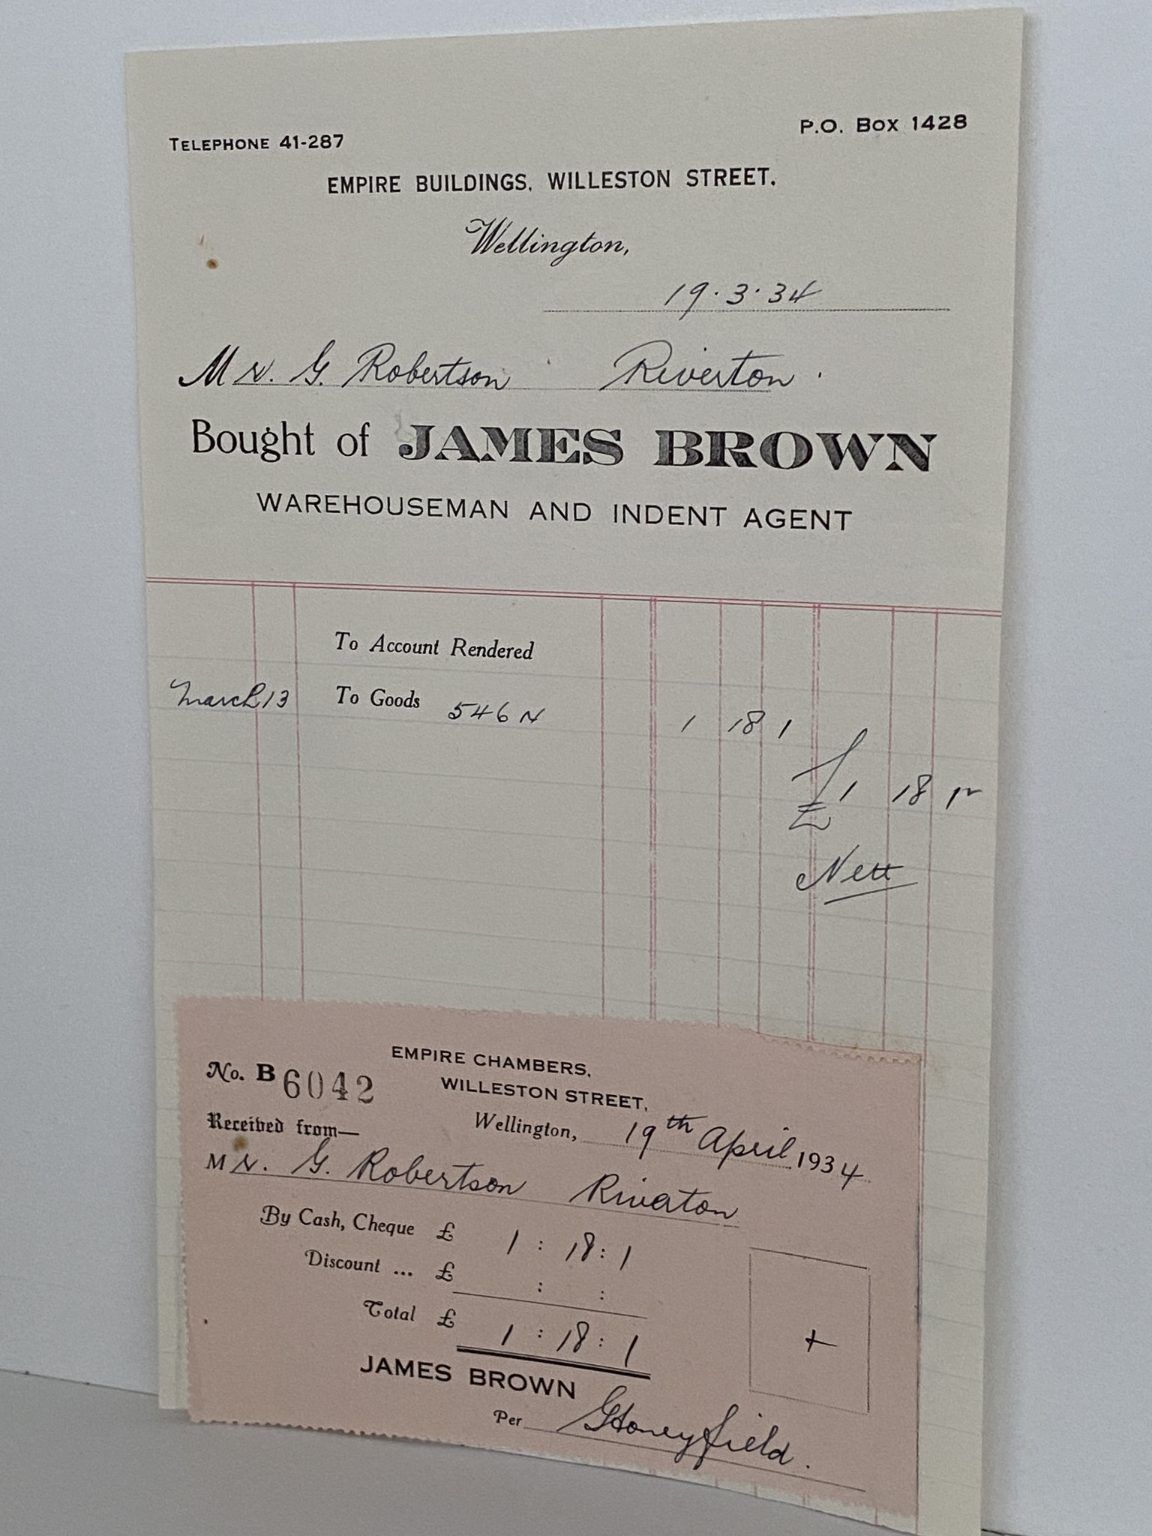 TELEPHONE 41-287
P.O. BOX 1428
EMPIRE BUILDINGS, WILLESTON STREET.
Wellington,
19.3.34
Mr. G. Robertson Riverton.
Bought of JAMES BROWN
WAREHOUSEMAN AND INDENT AGENT
To Account Rendered
March 13 To Goods 546 N 1 18 1
£1 18 1
Nett
No. B 6042
EMPIRE CHAMBERS,
WILLESTON STREET,
Received from—
Wellington, 19th April 1934
Mr. G. Robertson Riverton
By Cash, Cheque £ 1 : 18 : 1
Discount ... £ : :
Total £ 1 : 18 : 1
JAMES BROWN
Per GHoneyfield.
+